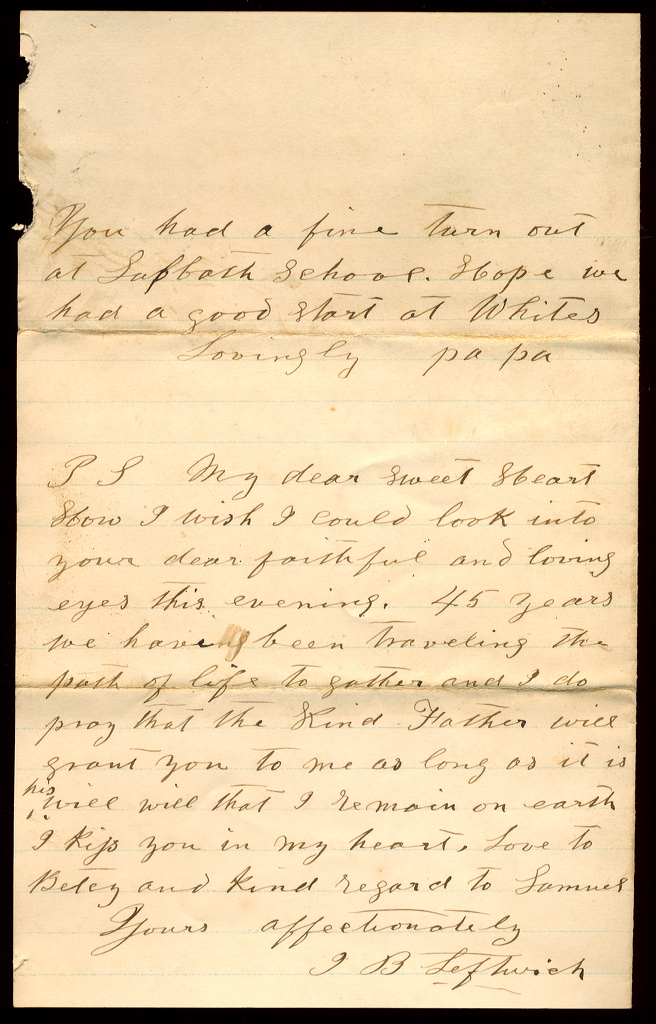 You had a fine turn out
at Sabbath School. Hope we
had a good start at Whites
Lovingly pa pa
P S My dear Sweet Heart
How I wish I could look into
your dear faithful and loving
eyes this evening. 45 years
we have been traveling the
path of life to gather and I do
pray that the Kind Father will
grant you to me as long as it is
his will will that I remain on earth
I kiss you in my heart. Love to
Betcy and kind regard to Samuel
Yours affectionately
J B Leftwich